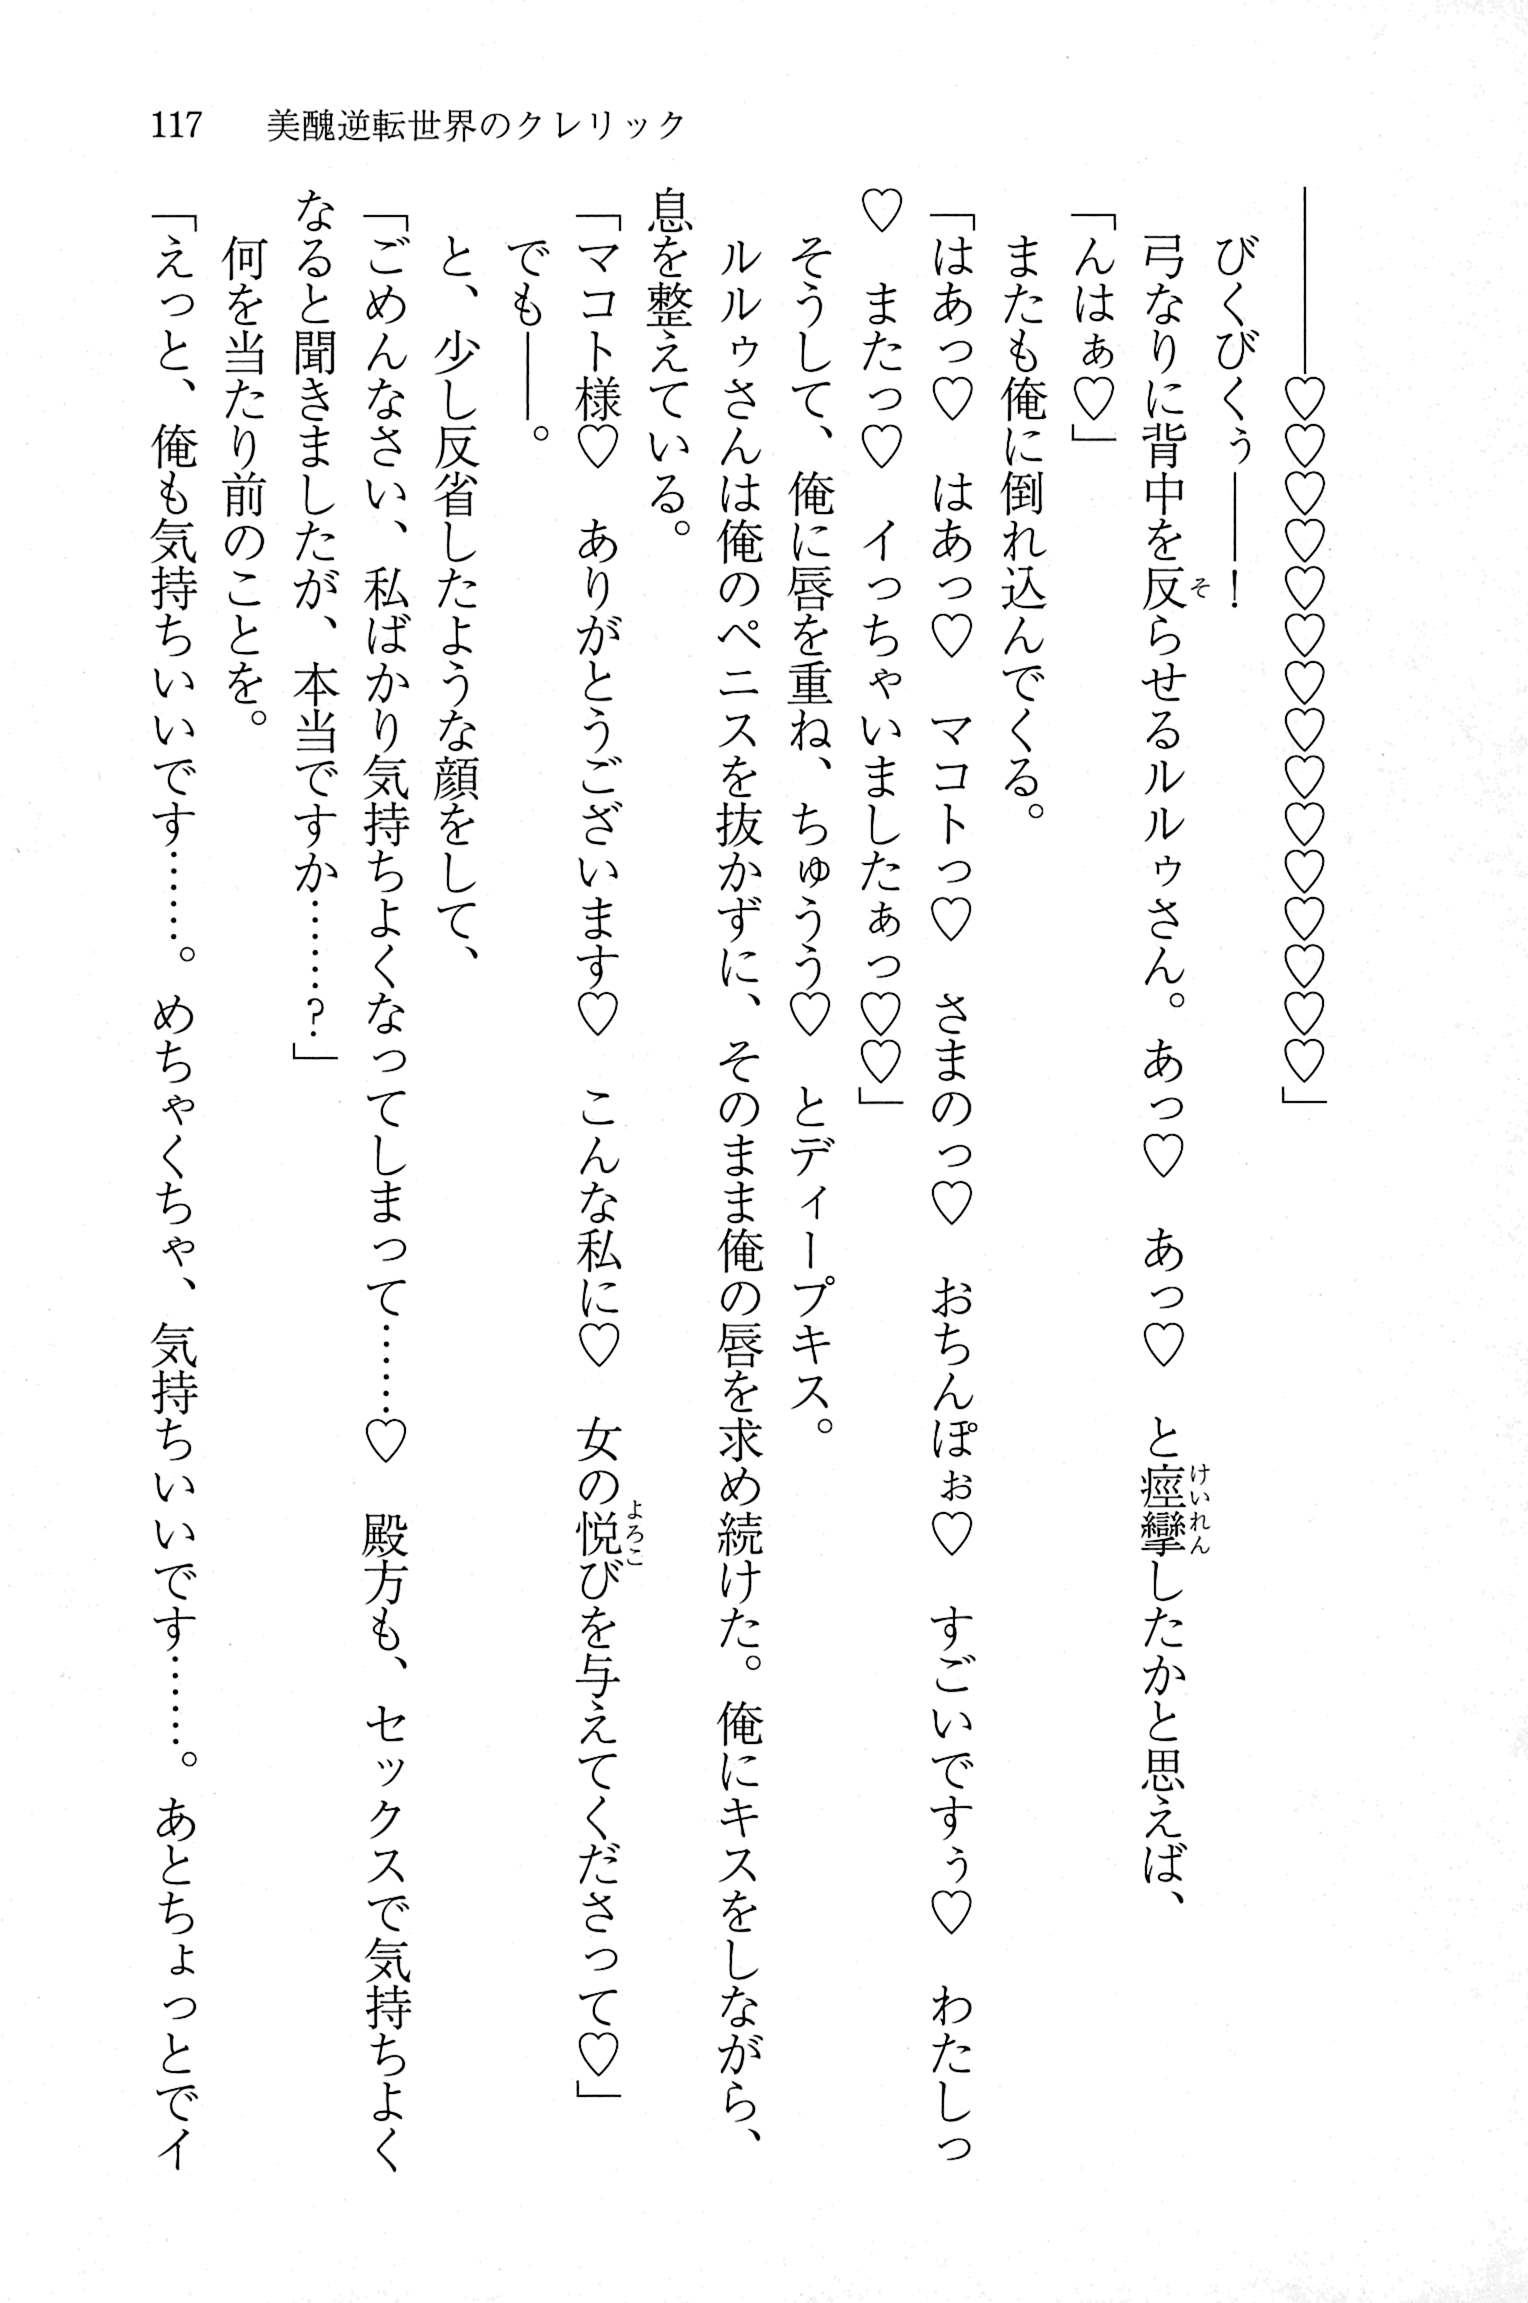 117　美醜逆転世界のクレリック
――――♡♡♡♡♡♡♡♡♡♡♡♡♡♡♡」
　びくびくぅ――！
　弓なりに背中を反らせるルルゥさん。あっ♡　あっ♡　と痙攣したかと思えば、
「んはぁ♡」
　またも俺に倒れ込んでくる。
「はあっ♡　はあっ♡　マコトっ♡　さまのっ♡　おちんぽぉ♡　すごいですぅ♡　わたしっ
♡　またっ♡　イっちゃいましたぁっ♡♡」
　そうして、俺に唇を重ね、ちゅうう♡　とディープキス。
　ルルゥさんは俺のペニスを抜かずに、そのまま俺の唇を求め続けた。俺にキスをしながら、
息を整えている。
「マコト様♡　ありがとうございます♡　こんな私に♡　女の悦びを与えてくださって♡」
　でも――。
　と、少し反省したような顔をして、
「ごめんなさい、私ばかり気持ちよくなってしまって……♡　殿方も、セックスで気持ちよく
なると聞きましたが、本当ですか……？」
　何を当たり前のことを。
「えっと、俺も気持ちいいです……。めちゃくちゃ、気持ちいいです……。あとちょっとでイ